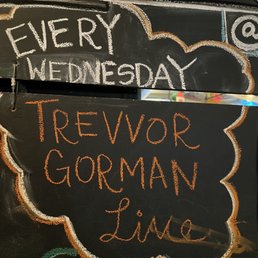 EVERY
WEDNESDAY
@
TREVVOR
GORMAN
Live